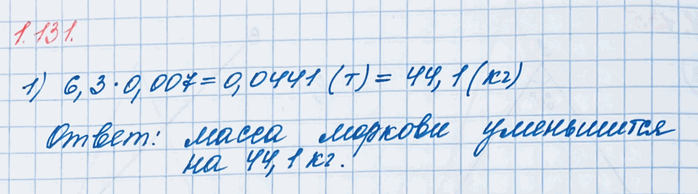 1.131.
1) 6,3·0,007=0,0441 (т)= 44,1(кг)
Ответ: масса моркови уменьшится
на 44,1 кг.